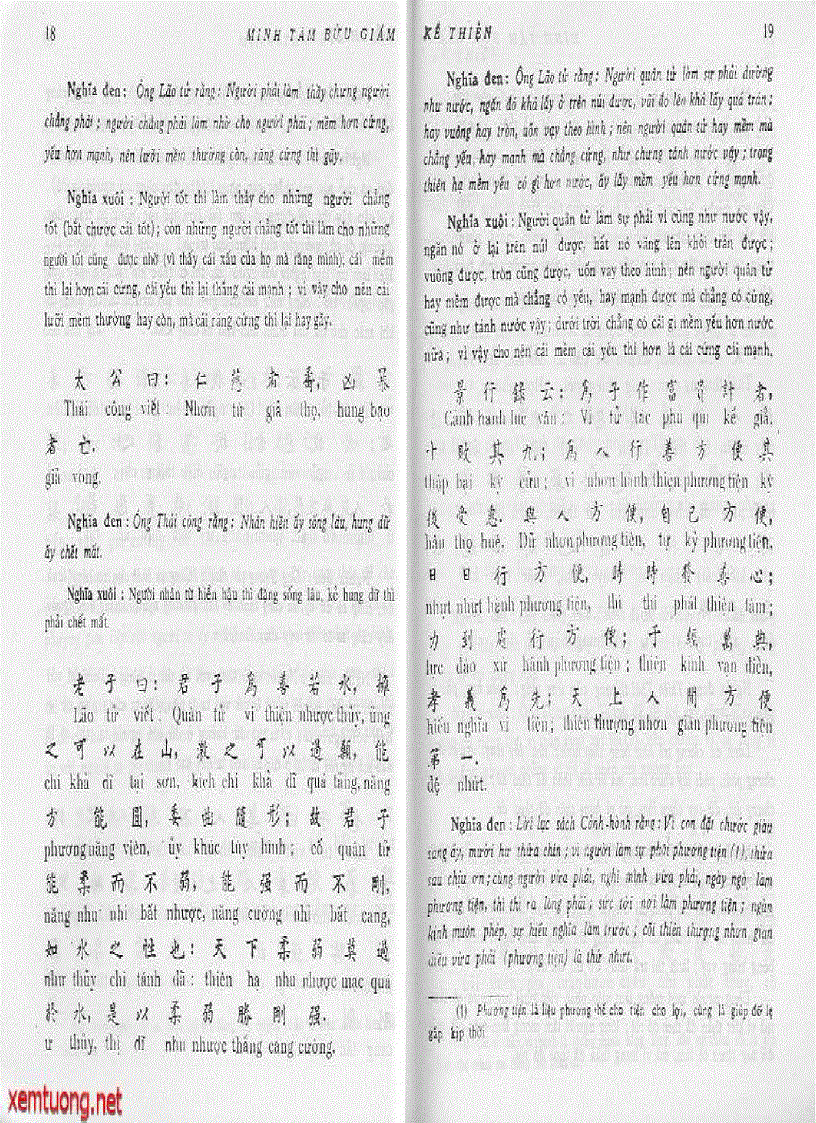 18 MINH TÂM BỬU GIÁM
Nghĩa đen : Ông Lão tử rằng : Người phải làm thầy chưng người
chẳng phải ; người chẳng phải làm nhờ cho người phải ; mềm hơn cứng,
yếu hơn mạnh, nên lưỡi mềm thường còn, răng cứng thì gãy.
Nghĩa xuôi : Người tốt thì làm thầy cho những người chẳng
tốt (bắt chước cái tốt) ; còn những người chẳng tốt thì làm cho những
người tốt cũng được nhờ (vì thấy cái xấu của họ mà răng mình). cái mềm
thì lại hơn cái cứng, cái yếu thì lại thắng cái mạnh ; vì vậy cho nên cái
lưỡi mềm thường hay còn, mà cái răng cứng thì lại hay gãy.
太 公 曰 : 仁 慈 者 壽, 凶 暴
Thái công viết : Nhơn từ giả thọ, hung bạo
者 亡.
giả vong.
Nghĩa đen : Ông Thái công rằng : Nhân hiền ấy sống lâu, hung dữ
ấy chết mất.
Nghĩa xuôi : Người nhân từ hiền hậu thì đặng sống lâu, kẻ hung dữ thì
phải chết mất.
老 子 曰 : 君 子 為 善 若 水, 擁
Lão tử viết : Quân tử vi thiện nhược thủy, ủng
之 可 以 在 山, 激 之 可 以 過 顙, 能
chi khả dĩ tại sơn, kích chi khả dĩ quá tảng, năng
方 能 圓, 委 曲 隨 形 ; 故 君 子
phương năng viên, ủy khúc tùy hình ; cố quân tử
能 柔 而 不 弱, 能 强 而 不 剛,
năng nhu nhi bất nhược, năng cường nhi bất cang,
如 水 之 性 也 : 天 下 柔 弱 莫 過
như thủy chi tánh dã : thiên hạ nhu nhược mạc quá
於 水, 是 以 柔 弱 勝 剛 强.
ư thủy, thị dĩ nhu nhược thắng cang cường.
KẾ THIỆN 19
Nghĩa đen : Ông Lão tử rằng : Người quân tử làm sự phải dường
như nước, ngăn đó khả lấy ở trên núi được, vải đó lên khả lấy quá trán ;
hay vuông hay tròn, uốn vạy theo hình ; nên người quân tử hay mềm mà
chẳng yếu, hay mạnh mà chẳng cứng, như chưng tánh nước vậy ; trong
thiên hạ mềm yếu có gì hơn nước, ấy lấy mềm yếu hơn cứng mạnh.
Nghĩa xuôi : Người quân tử làm sự phải ví cũng như nước vậy,
ngăn nó ở lại trên núi được, hất nó văng lên khỏi trán được ;
vuông được, tròn cũng được, uốn vạy theo hình ; nên người quân tử
hay mềm được mà chẳng có yếu, hay mạnh được mà chẳng có cứng,
cũng như tánh nước vậy ; dưới trời chẳng có cái gì mềm yếu hơn nước
nữa ; vì vậy cho nên cái mềm cái yếu thì hơn là cái cứng cái mạnh.
景 行 錄 云 : 為 子 作 富 貴 計 者,
Cảnh hành lục vân : Vi tử tác phú quí kế giả,
十 敗 其 九 ; 為 人 行 善 方 便 其
thập bại kỳ cửu ; vi nhơn hành thiện phương tiện kỳ
後 受 惠. 與 人 方 便, 自 己 方 便,
hậu thọ huệ. Dữ nhơn phương tiện, tự kỷ phương tiện,
日 日 行 方 便, 時 時 發 善 心 ;
nhựt nhựt hành phương tiện, thì thì phát thiện tâm ;
力 到 處 行 方 便 ; 千 經 萬 典,
lực đáo xứ hành phương tiện ; thiên kinh vạn điển,
孝 義 為 先 ; 天 上 人 間 方 便
hiếu nghĩa vi tiên ; thiên thượng nhơn gian phương tiện
第 一.
đệ nhứt.
Nghĩa đen : Lời lục sách Cảnh-hành rằng : Vì con đặt chước giàu
sang ấy, mười hư thửa chín ; vì người làm sự phải phương tiện (1), thửa
sau chịu ơn ; cùng người vừa phải, nghĩ mình vừa phải, ngày ngày làm
phương tiện, thì thì ra lòng phải ; sức tới nơi làm phương tiện ; ngàn
kinh muôn phép, sự hiếu nghĩa làm trước ; cõi thiên thượng nhơn gian
điều vừa phải (phương tiện) là thứ nhứt.
(1) Phương tiện là liệu phương thế cho tiện cho lợi, cũng là giúp đỡ
gấp kịp thời.
xemtuong.net